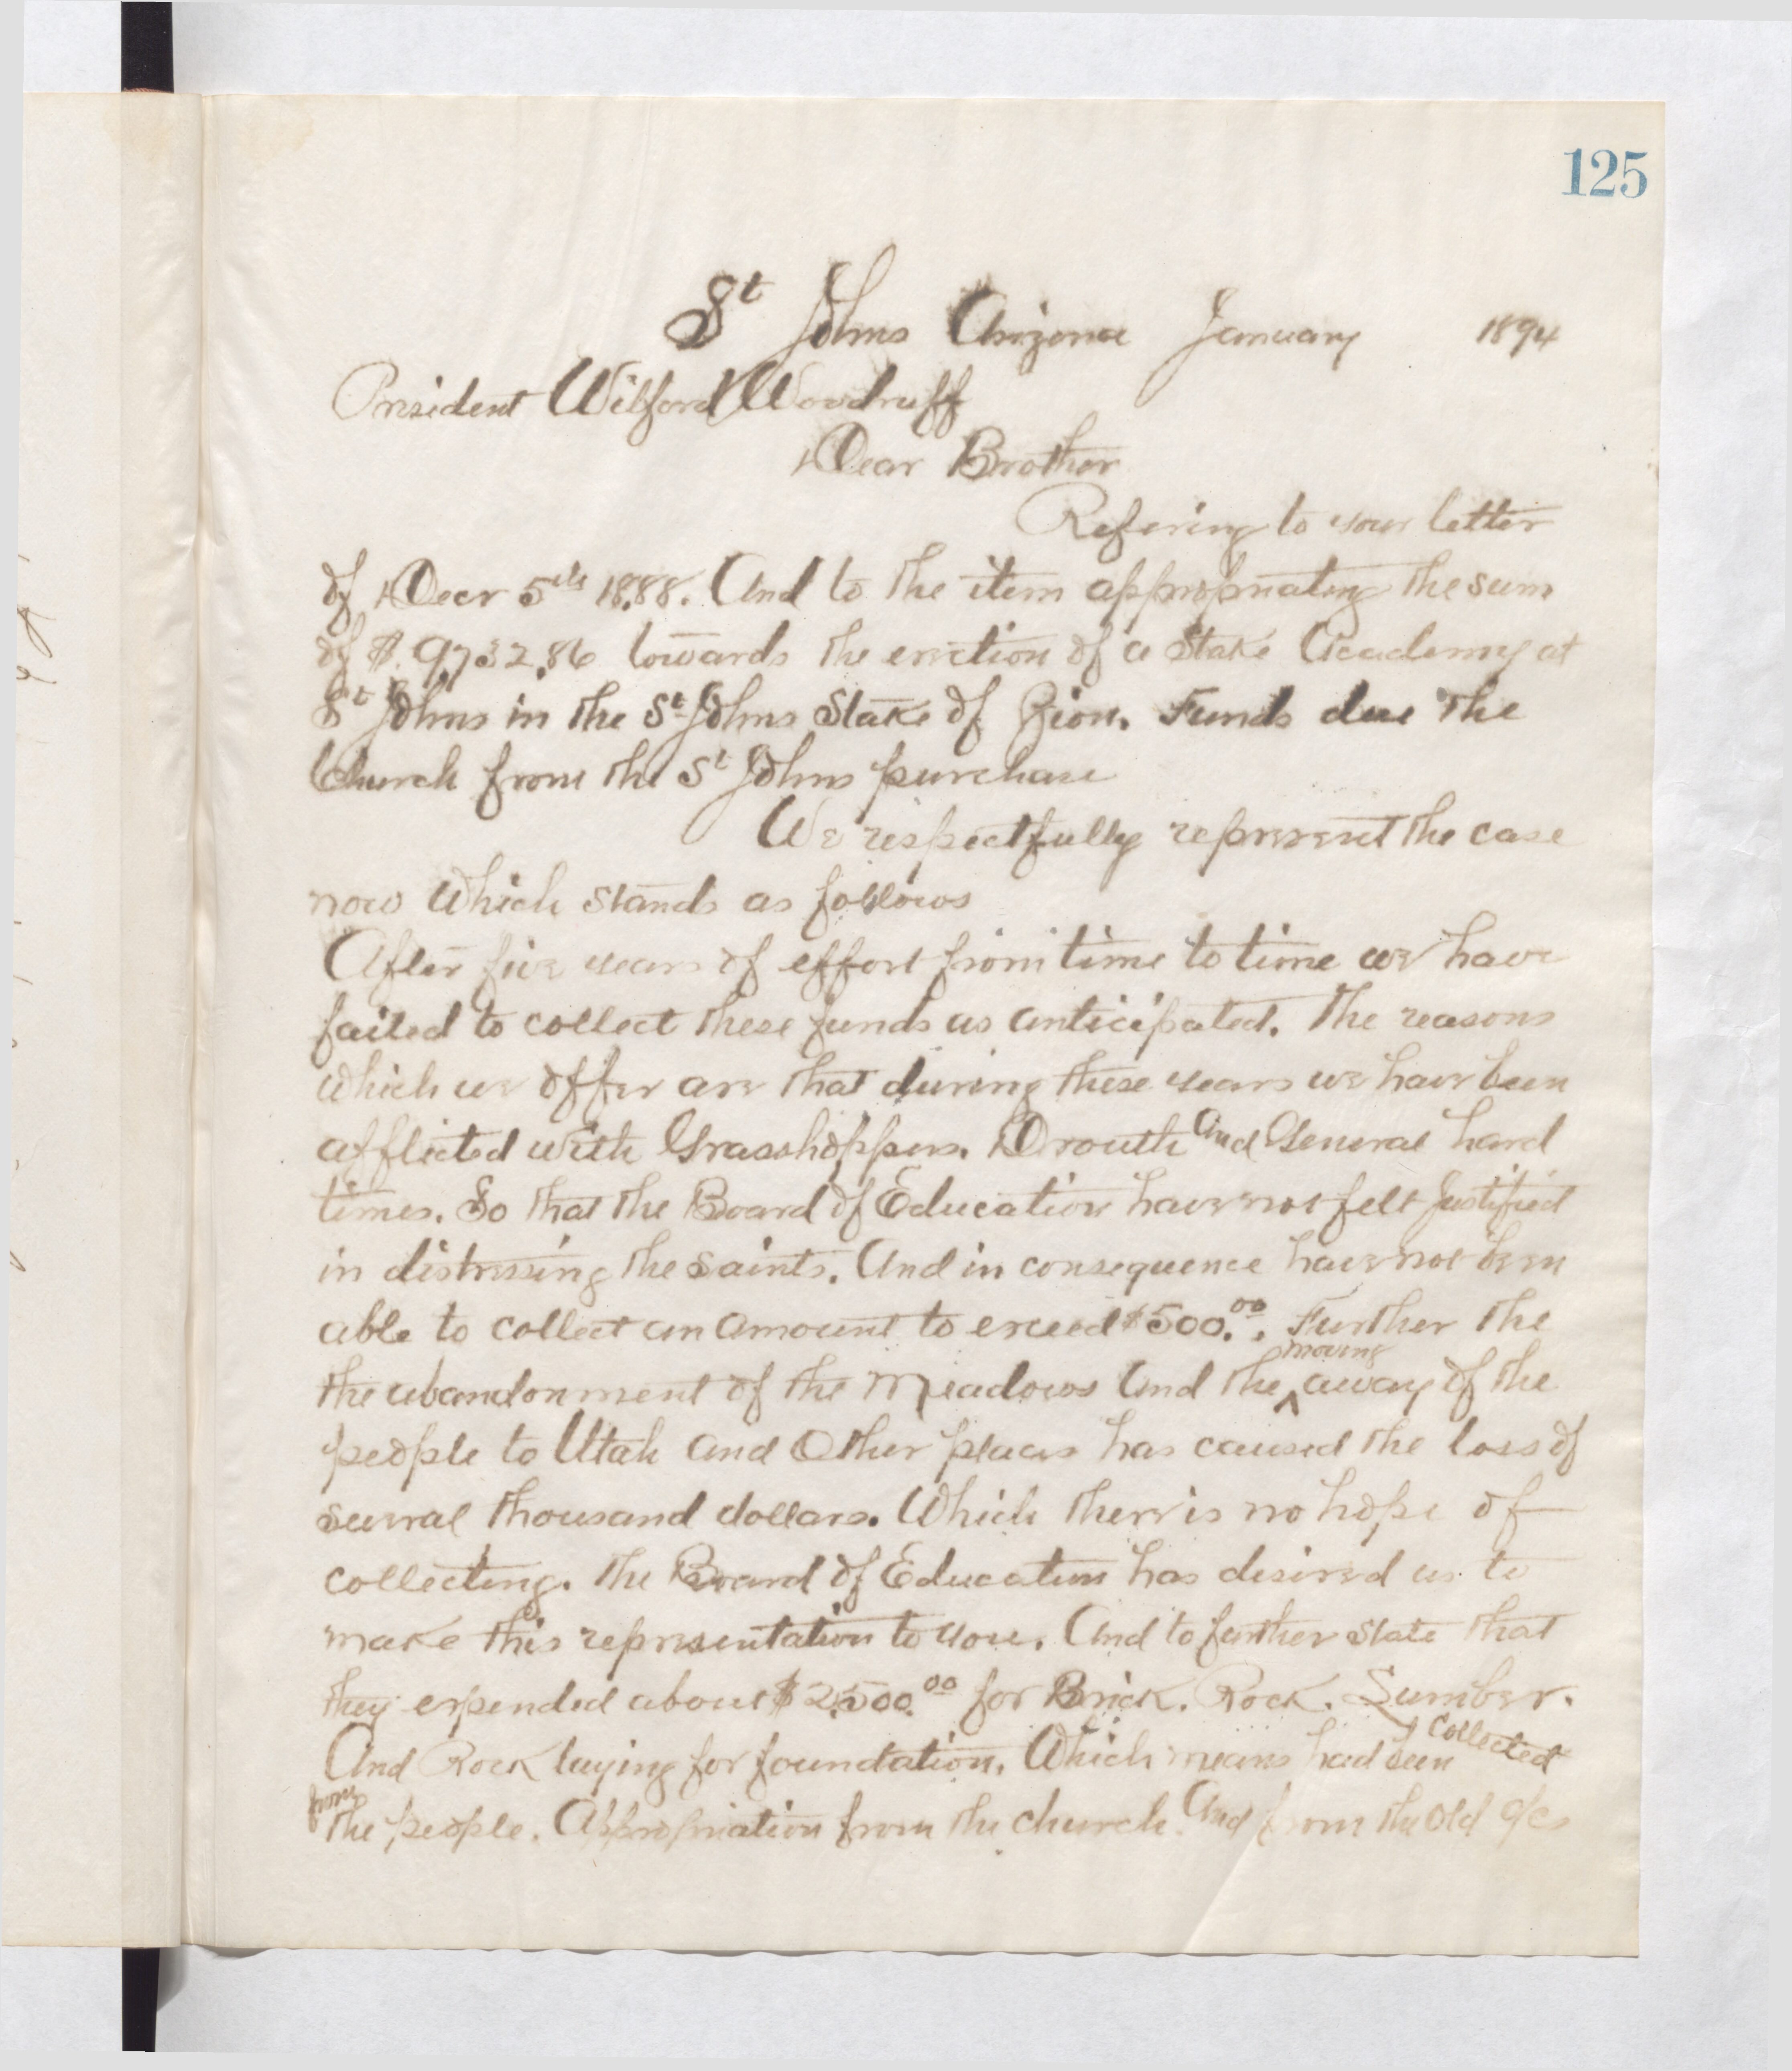 125
St Johns Arizona January 1894
President Wilford Woodruff
Dear Brother
Refering to your letter
of Decr 5th 1888. And to the item appropriating the sum
of $.9732.86 towards the erection of a Stake Academy at
St Johns in the St Johns Stake of Zion. Funds due the
Church from the St Johns purchase
We respectfully represent the case
now which stands as follows
After five years of effort from time to time we have
failed to collect these funds as anticipated. The reasons
which we offer are that during these years we have been
afflicted with Grasshoppers. Drouth and General hard
times. So that the Board of Education have not felt Justified
in distressing the saints. And in consequence have not been
able to collect an amount to exceed $500.00. Further the
the abandonment of the Meadows and the moving away of the
people to Utah and Other places has caused the loss of
several thousand dollars. Which there is no hope of
collecting. The Board of Education has desired us to
make this representation to you. And to further state that
they expended about $2500.00 for Brick. Rock. Lumber.
And Rock laying for foundation. Which means had been collected
from the people. Appropriation from the church. And from the Old a/cs